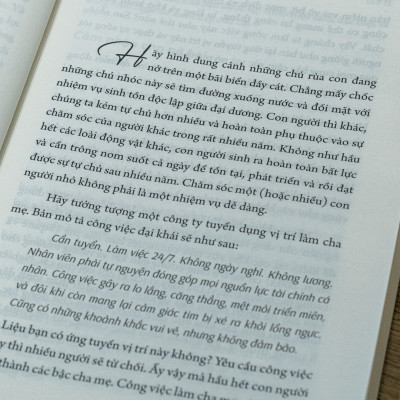 Hãy hình dung cảnh những chú rùa con đang
nở trên một bãi biển đầy cát. Chẳng mấy chốc
những chú nhóc này sẽ tìm đường xuống nước và đối mặt với
nhiệm vụ sinh tồn độc lập giữa đại dương. Con người thì khác,
chúng ta kém tự chủ hơn nhiều và hoàn toàn phụ thuộc vào sự
chăm sóc của người khác trong rất nhiều năm. Không như hầu
hết các loài động vật khác, con người sinh ra hoàn toàn bất lực
và cần trông nom suốt cả ngày để tồn tại, phát triển và rồi đạt
được sự tự chủ sau nhiều năm. Chăm sóc một (hoặc nhiều) con
người nhỏ không phải là một nhiệm vụ dễ dàng.
Hãy tưởng tượng một công ty tuyển dụng vị trí làm cha
mẹ. Bản mô tả công việc đại khái sẽ như sau:
Cần tuyển. Làm việc 24/7. Không ngày nghỉ. Không lương.
Nhân viên phải tự nguyện đóng góp mọi nguồn lực tài chính cá
nhân. Công việc gây ra lo lắng, căng thẳng, mệt mỏi triền miên,
và đôi khi còn mang lại cảm giác tim bị xé ra khỏi lồng ngực.
Cũng có những khoảnh khắc vui vẻ, nhưng không đảm bảo.
Liệu bạn có ứng tuyển vị trí này không? Yêu cầu công việc
thì nhiều người sẽ từ chối. Ấy vậy mà hầu hết con người
thành các bậc cha mẹ. Công việc làm cha